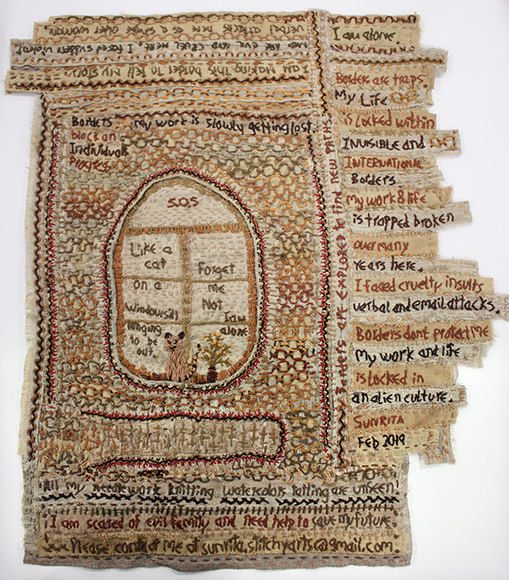 I am Making this border to tell my story.
AND ARE EVEN CRUEL HERE. I faced sudden violent
verbal attacks here as a single older woman.
Borders my work is slowly getting lost.
block an
Individuals
Progress.
S.O.S
Like a
cat
on a
windowsill
longing
to be
out.
Forget
me
Not
I am
alone
Borders are explored to find new paths.
I am alone.
Borders are traps
My Life
is locked within
Invisible and
International
Borders
my work & life
is trapped broken
over many
years here.
I faced cruelty insults
verbal and email attacks.
Borders dont protect me
My work and life
is locked in
an alien culture.
Sunrita
Feb 2019
All my needlework knitting watercolors tatting are unseen!
I am scared of evil family and need help to save my future.
Please contact me at sunrita.stitchyarts@gmail.com.